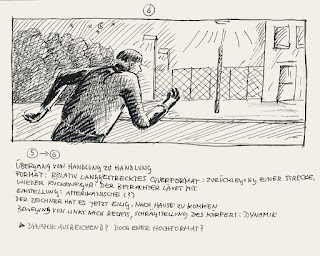 6
5 → 6
ÜBERGANG VON HANDLUNG ZU HANDLUNG
FORMAT: RELATIV LANGGESTRECKTES QUERFORMAT: ZURÜCKLEGUNG EINER STRECKE,
WIEDER RÜCKENFIGUR: DER BETRACHTER LÄUFT MIT
EINSTELLUNG: AMERIKANISCHE (?)
DER ZEICHNER HAT ES JETZT EILIG, NACH HAUSE ZU KOMMEN
BEWEGUNG VON LINKS NACH RECHTS, SCHRÄGSTELLUNG DES KÖRPERS: DYNAMIK
➤ DYNAMIK AUSREICHEND? DOCH EHER HOCHFORMAT?